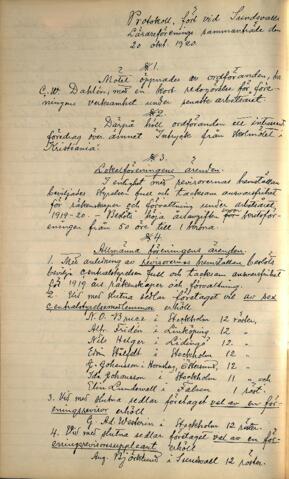 Protokoll, fört vid Sundsvalls
Lärareförenings sammanträde den
20 okt. 1920.
§ 1.
Mötet öppnades av ordföranden, hr
C. W. Dahlén, med en kort redogörelse för före-
ningens verksamhet under senaste arbetsåret.
§ 2.
Därpå höll ordföranden ett intressant
föredrag över ämnet Intryck från skolmötet i
Kristiania.
§ 3.
Lokalföreningens ärenden.
I enlighet med revisorernas hemställan
beviljades styrelsen full och tacksam ansvarsfrihet
för räkenskaper och förvaltning under arbetsåret
1919-20. – Beslöts höja årsavgiften för kretsföre-
ningen från 50 öre till 1 krona.
§ 4.
Allmänna föreningens ärenden.
1. Med anledning av revisorernas hemställan beslöts
bevilja centralstyrelsen full och tacksam ansvarsfrihet
för 1919 års räkenskaper och förvaltning.
2. Vid med slutna sedlar företaget val av sex
centralstyrelsemedlemmar erhöll
N. O. Bruce i Stockholm 12 röster,
Alf. Fridén i Linköping 12 "
Nils Helger i Lidingö 12 "
Edv. i Stockholm 12 "
G. Johansson i Hornsberg, Östersund, 12 "
Ida Johansson i Stockholm 11 " och
Elin Lundewall i Falun 1 röst.
3. Vid med slutna sedlar företaget val av en för-
eningsrevisor erhöll
G. Ad Westerin i Stockholm 12 röster.
4. Vid med slutna sedlar företaget val av en för-
eningsrevisorssuppleant erhöll
Aug. Björklund i Sundsvall 12 röster.